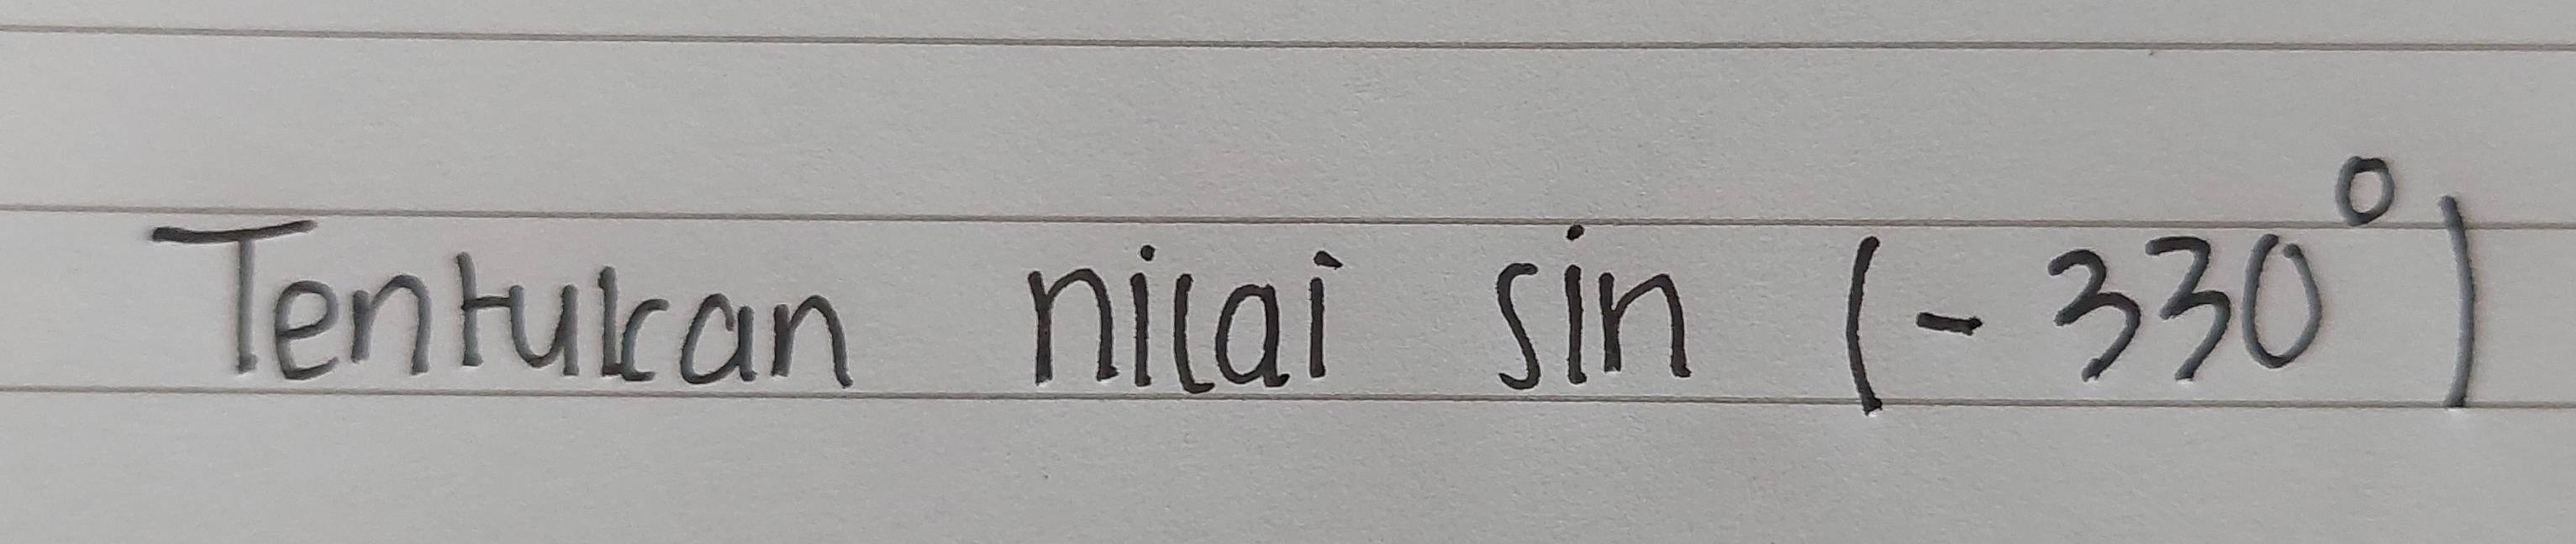 Tentukan nilai sin (-330°)